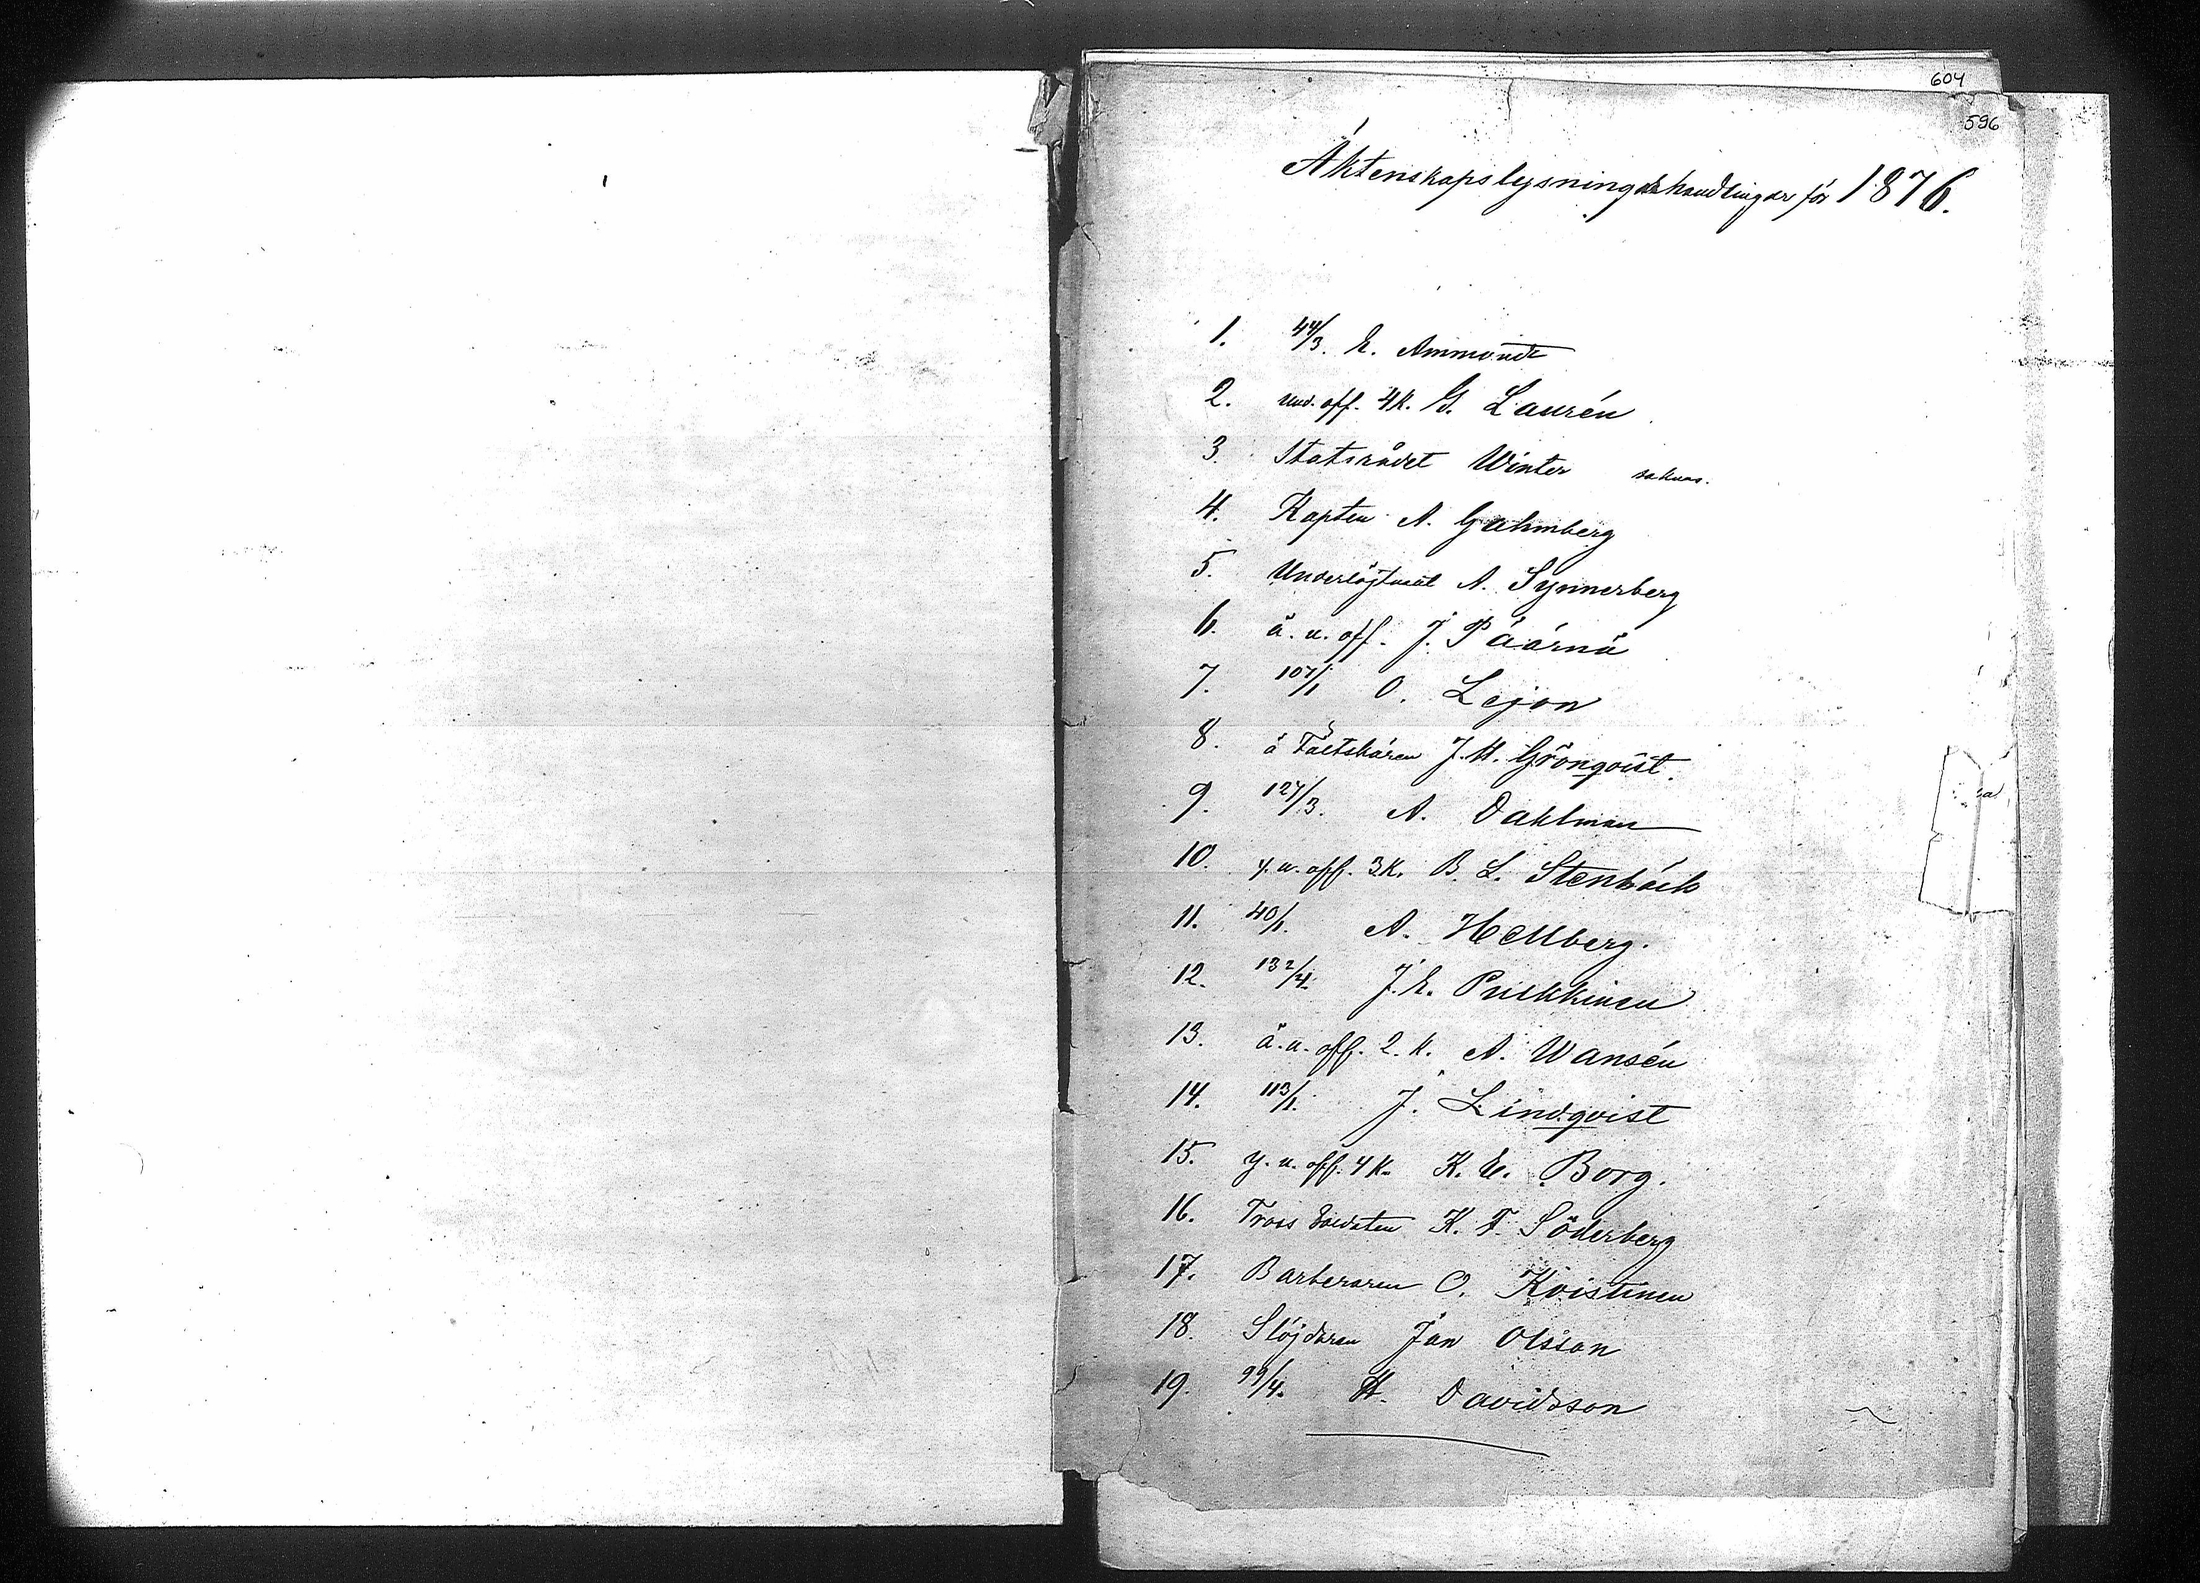 604
596
Äktenskapslysningshandlingar för 1876.
1. 44/3. E. Ammondt
2. und. off. 4 k. G. Laurén
3. Statsrådet Winter saknas.
4. Kapten A. Gahmberg
5. Underlöjtnant A. Synnerberg
6. ä. u. off. J. Päärnä
7. 107/1 O. Lejon
8. ä Fältskären J. H. Grönqvist.
9. 127/3. A. Dahlman
10. y. u. off. 3 k. B. L. Stenbäck
11. 40/1. A. Hellberg.
12. 132/4. J. E. Pulkkinen
13. ä. u. off. 2. k. A. Wansén
14. 113/1. J. Lindqvist
15. y. u. off. 4 k. K. E. Borg.
16. Tross soldaten K. F. Söderberg
17. Barberaren O. Koistinen
18. Slöjdaren Jan Olsson
19. 99/4. H. Davidsson